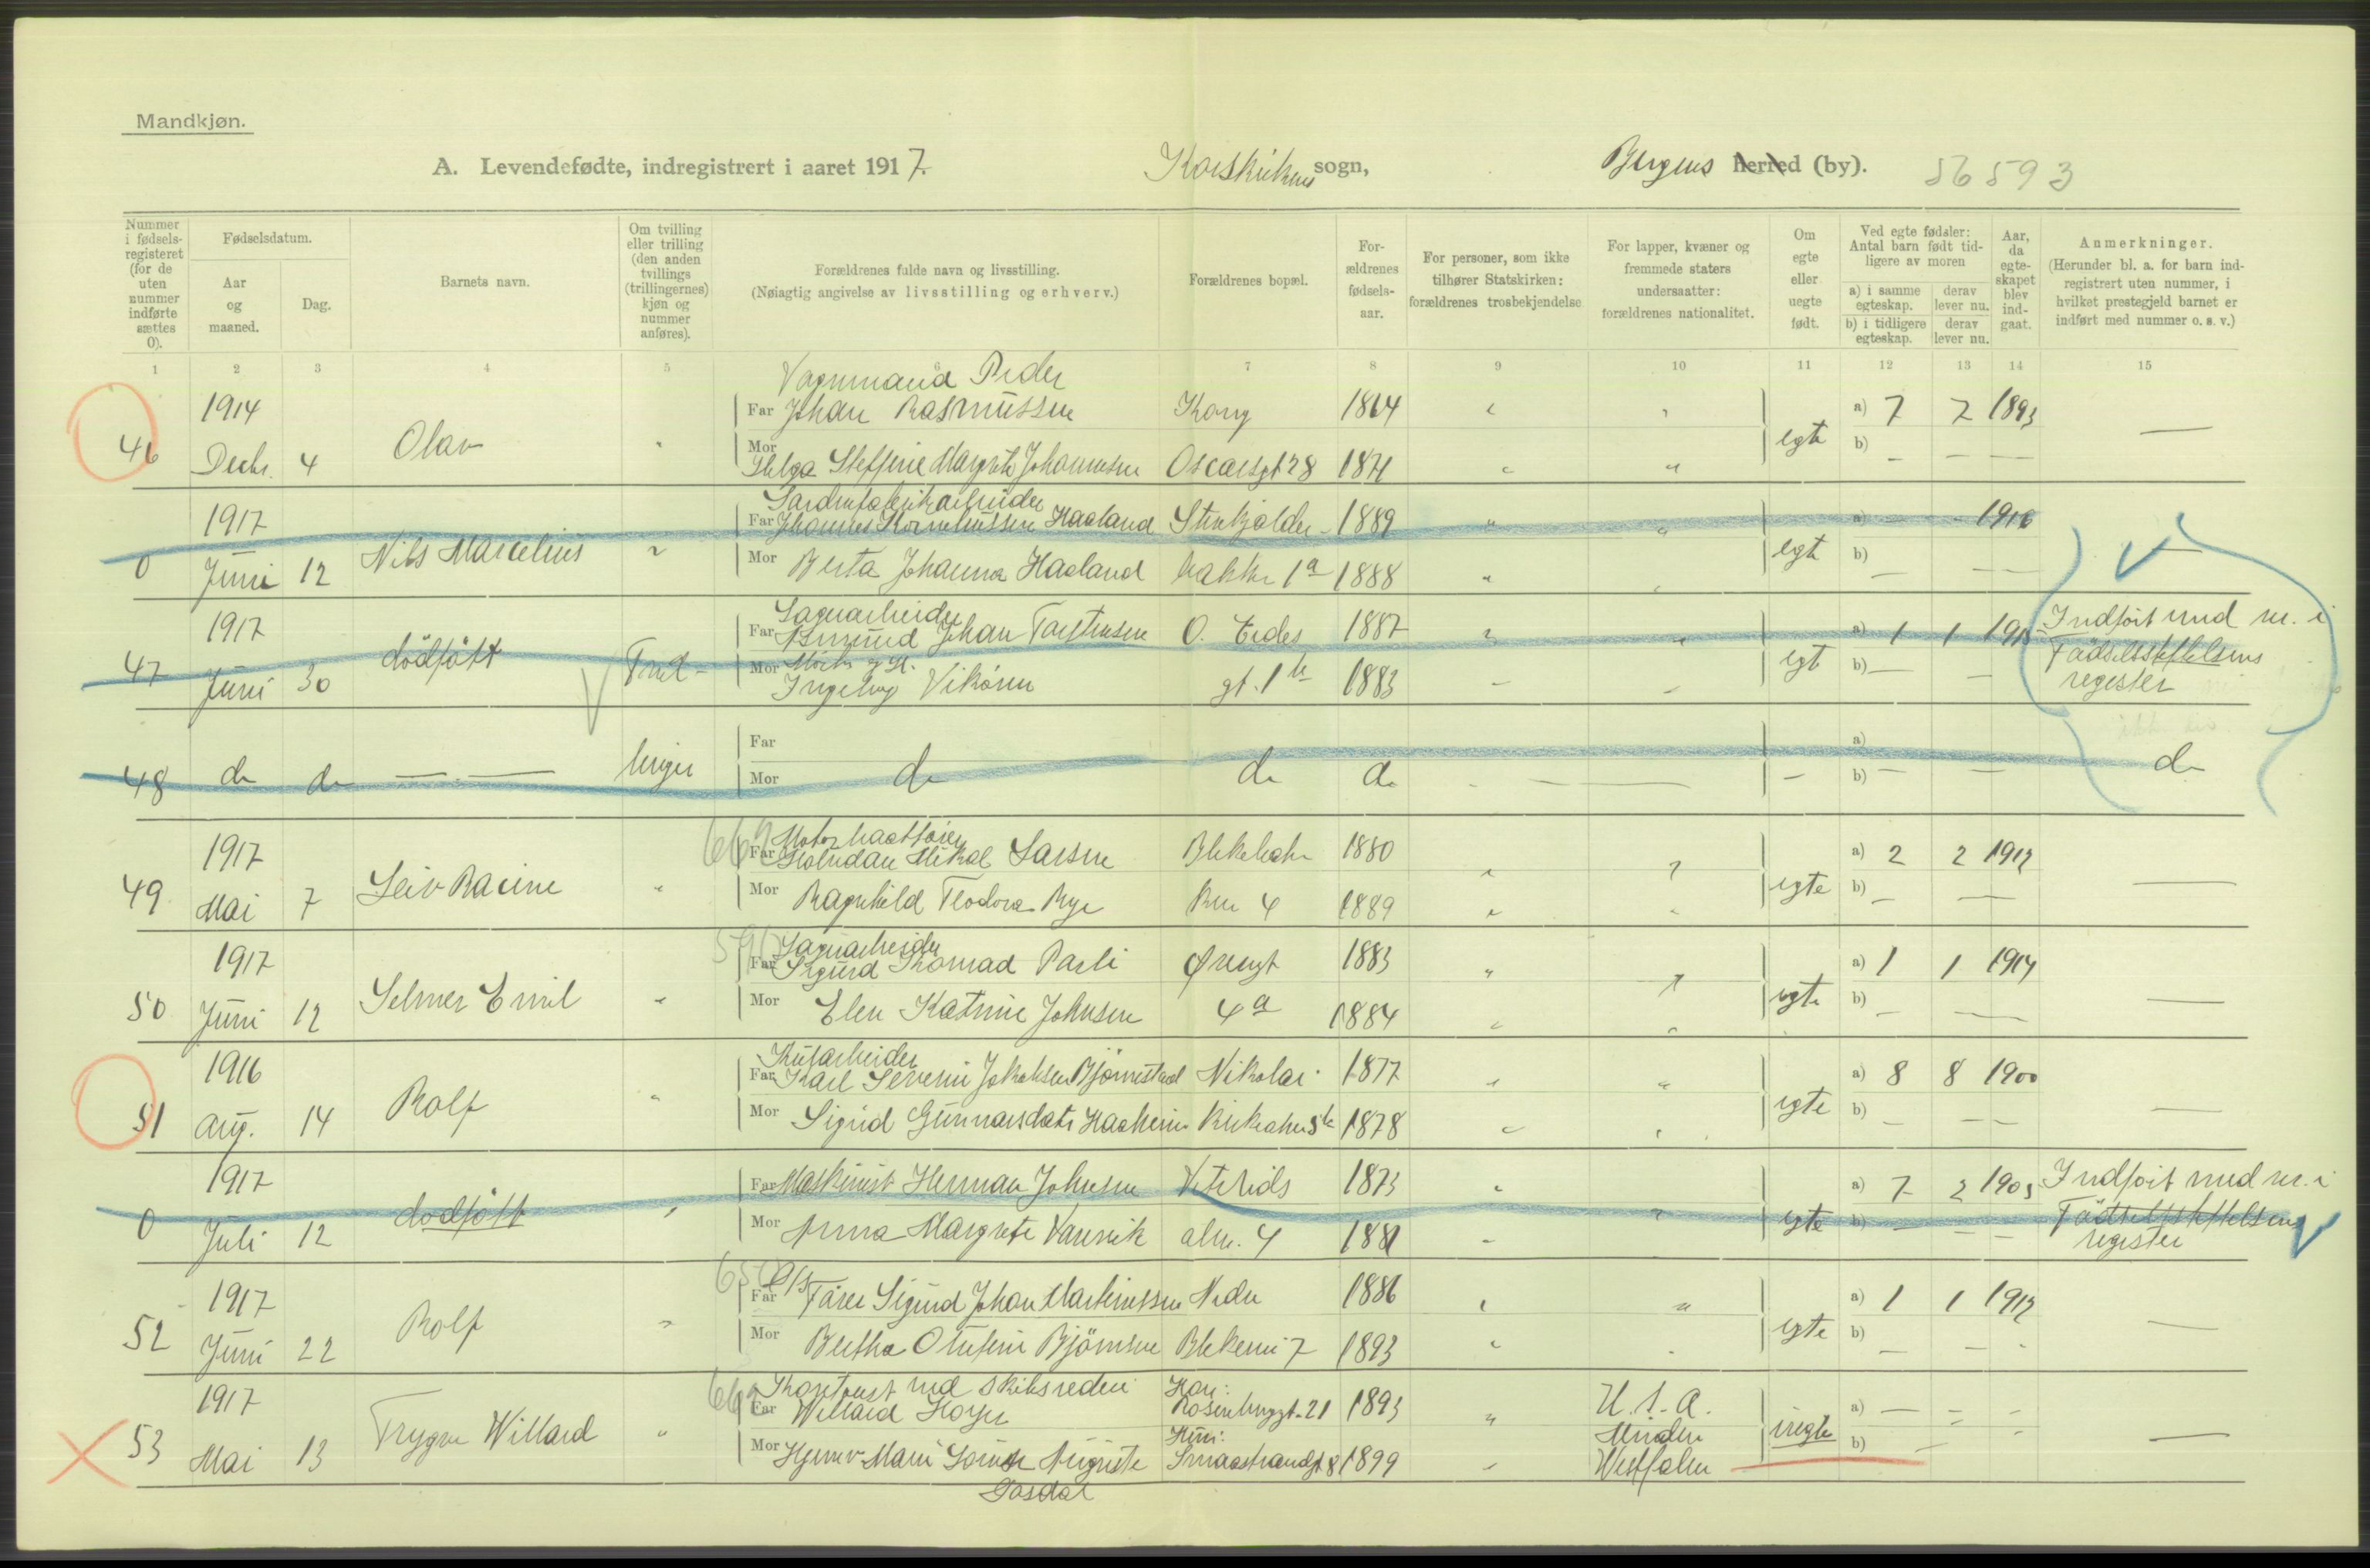 Mandkjøn.
A. Levendefødte, indregistrert i aaret 1917. Korskirkens sogn, Bergens herred (by). 56593
Nummer i fødsels-registeret (for de uten nummer indførte sættes 0).
Fødselsdatum.
Aar og maaned.
Dag.
Barnets navn.
Om tvilling eller trilling (den anden tvillings (trillingernes) kjøn og nummer anføres).
Forældrenes fulde navn og livsstilling.
(Nøiagtig angivelse av livsstilling og erhverv.)
Forældrenes bopæl.
For-ældrenes fødsels-aar.
For personer, som ikke tilhører Statskirken: forældrenes trosbekjendelse
For lapper, kvæner og fremmede staters undersaatter: forældrenes nationalitet.
Om egte eller uegte født.
Ved egte fødsler: Antal barn født tidligere av moren
a) i samme egteskap. derav lever nu.
b) i tidligere egteskap. derav lever nu.
Aar, da egte-skapet blev ind-gaat.
Anmerkninger.
(Herunder bl. a. for barn ind-registrert uten nummer, i hvilket prestegjeld barnet er indført med nummer o. s. v.)
1 2 3 4 5 7 8 9 10 11 12 13 14 15
Vognmand Peder
1914 Far Johan Rasmussen Kong 1864 a) 7 7 1893
46 Decbr. 4 Olav Mor Helga Steffine Margrete Johannesen Oscarsgt 28 1871 egte b) —
Sardinfabrikarbeider
1917 Far Johannes Kornelius­sen Haaland Stenkjelder- 1889 a) — 1916
0 Juni 12 Nils Marcelius Mor Berta Johanna Haaland bakken 1a 1888 egte b) —
Sagnarbeider
1917 Far Asmund Johan Torstensen O. Erdes 1887 a) 1 1 1915 Indført med nr. i
47 Juni 30 dødfødt Tril- Mor Ingeborg Vikøren gt. 1 b 1883 egte b) — Fødselsstiftelsens
register
Far a)
48 do do — linger Mor do do do — b) — do
Motorbaatfører
669 1917 Far Halvdan Mikal Larsen Blekebak 1880 a) 2 2 1913
49 Mai 7 Leiv Racine Mor Ragnhild Teodora Rye ken 4 1889 egte b) —
1917 Far Sigurd Konrad Parli Øvregt 1883 a) 1 1 1914
50 Juni 12 Selmer Emil Mor Elen Katrine Johnsen 4a 1884 egte b) —
1916 Far Karl Severin Jakobsen Bjørnestad Nikolai 1877 a) 8 8 1900
51 Aug. 14 Rolf Mor Sigrid Gunnarsdatter kirkealm 5b 1878 egte b) —
1917 Far Maskinist Herman Johnsen Vetrlids 1873 a) 7 2 1903 Indført med nr. i
0 Juli 12 dødfødt Mor Anna Margrete Varvik alm. 4 1881 egte b) — Fødselsstiftelsens
register
1917 Far Fører Sigurd Johan Martinussen Nedre 1886 a) 1 1 1913
52 Juni 22 Rolf Mor Bertha Olufine Bjørnsen Blekevei 7 1893 egte b) —
Kontorist ved skibsrederi Han:
1917 Far Willard Hoyer Rosenbergsgt. 21 1893 U.S.A. a) —
53 Mai 13 Trygve Willard Mor Marie Auguste Hun: Smaastrandgt 8 1899 Minden Westfalen uegte b) —
Gosdal